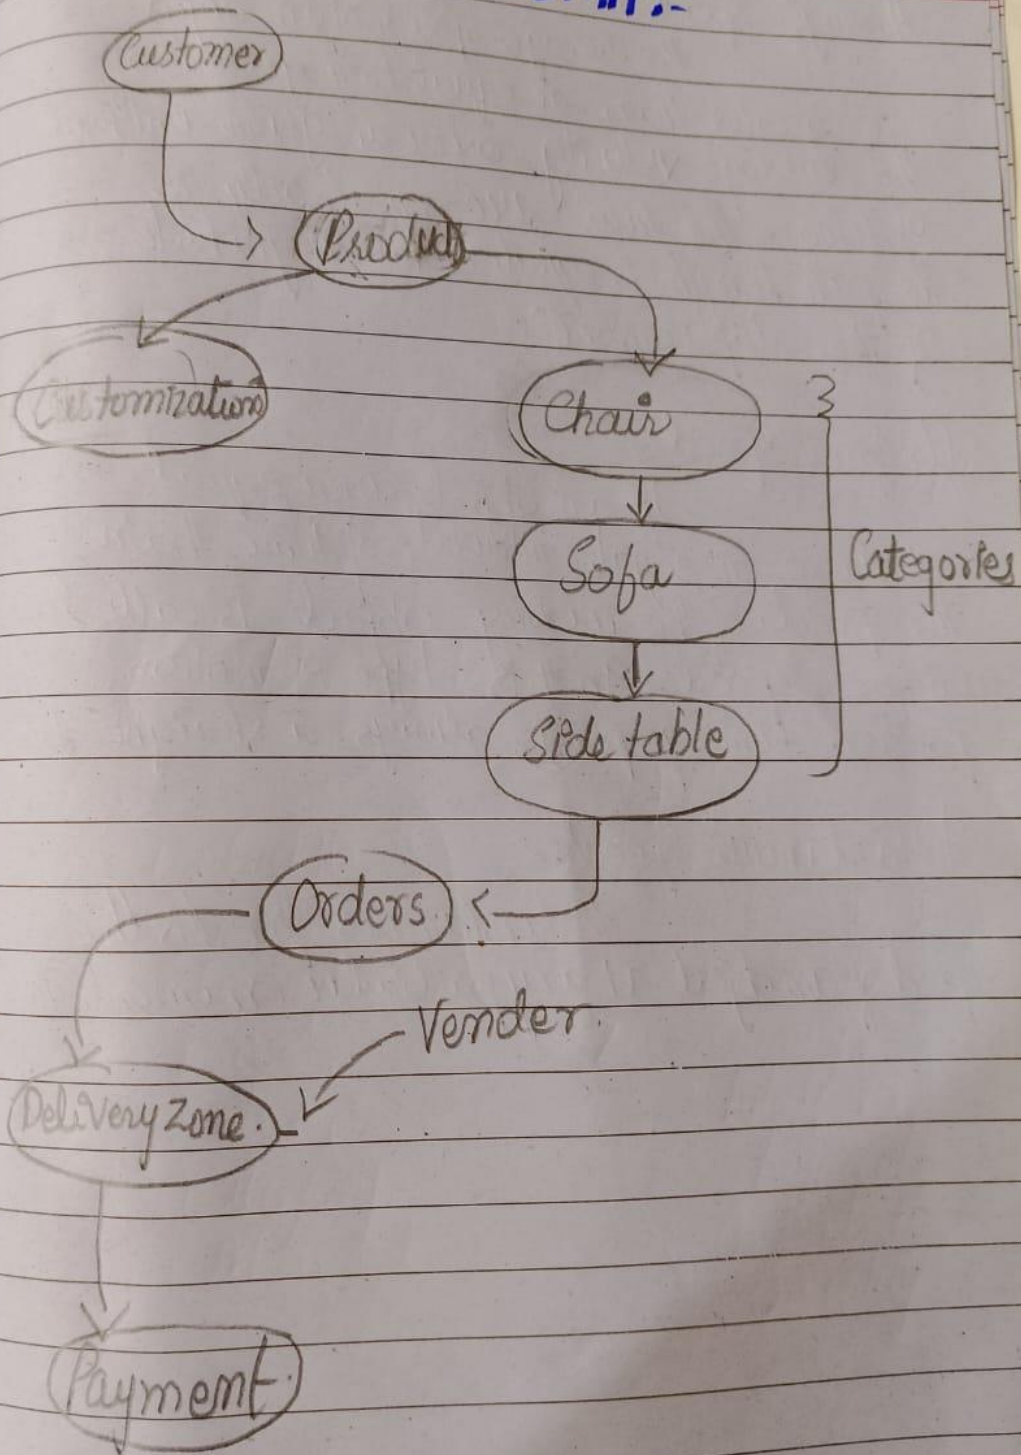 Customer
Product
Customization
Chair
Sofa
Categories
Side table
Orders
Vender.
Delivery Zone.
Payment.